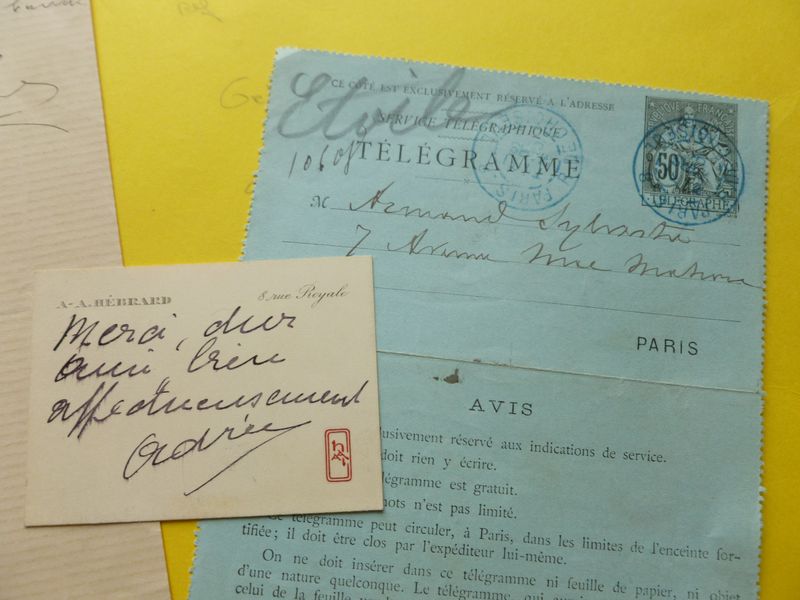 A-A. HÉBRARD 8 rue Royale
Merci, cher
ami, bien
affectueusement
Adrien
Etoile
CE CÔTÉ EST EXCLUSIVEMENT RÉSERVÉ A L'ADRESSE
SERVICE TÉLÉGRAPHIQUE
TÉLÉGRAMME
50
TÉLÉGRAPHE
PARIS
M Armand Sylvestre
7 Avenue
PARIS
AVIS
clusivement réservé aux indications de service.
doit rien y écrire.
légramme est gratuit.
mots n'est pas limité.
Ce télégramme peut circuler, à Paris, dans les limites de l'enceinte for-
tifiée; il doit être clos par l'expéditeur lui-même.
On ne doit insérer dans ce télégramme ni feuille de papier, ni objet
d'une nature quelconque. Le télégramme, qui
celui de la feuille